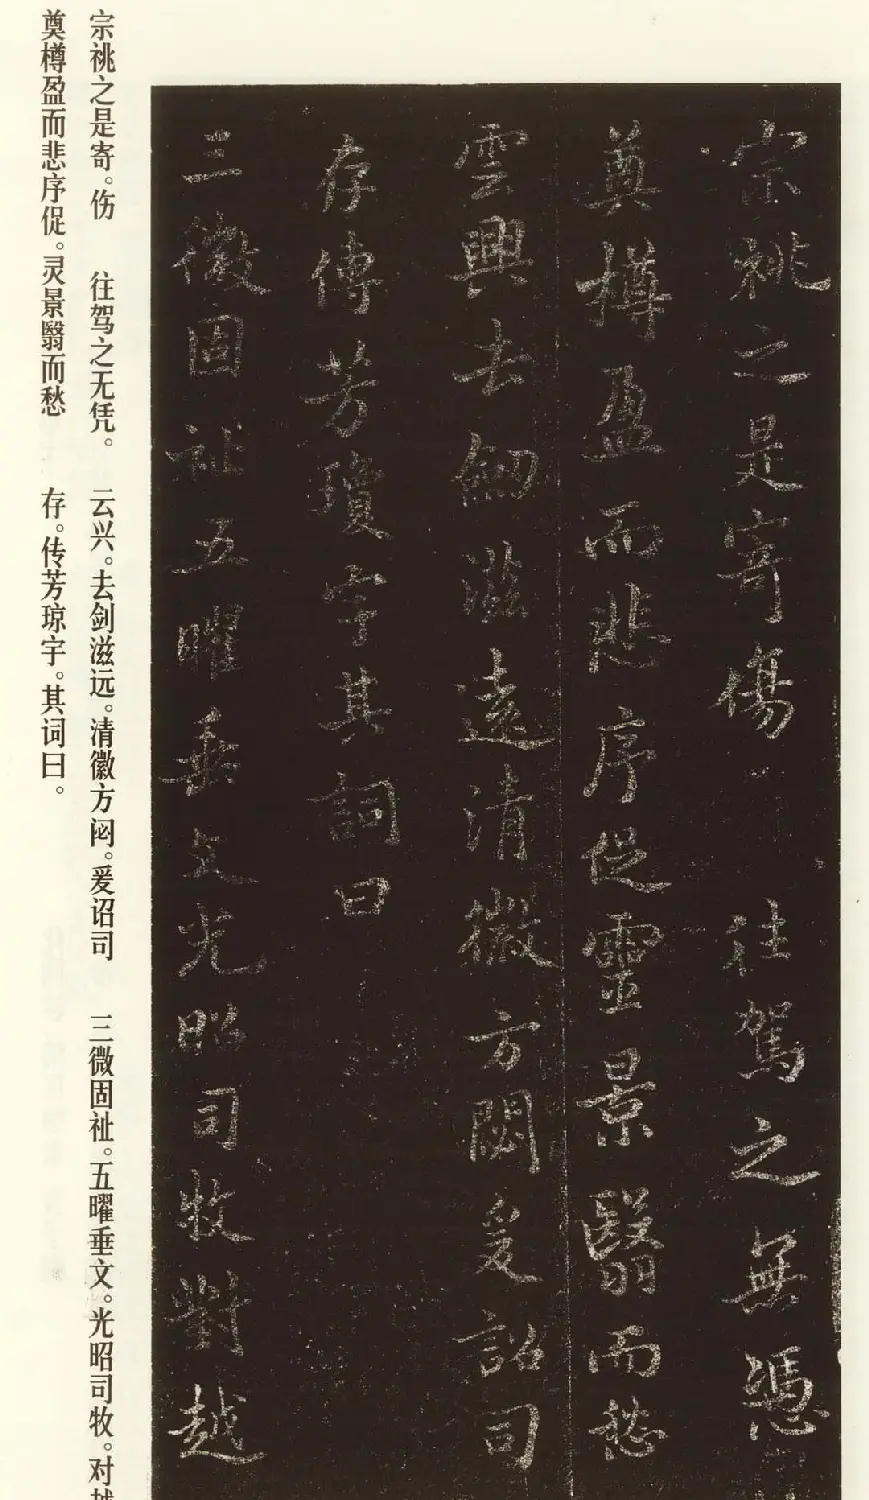 宗祧之是寄傷 往駕之無憑
奠樽盈而悲序促靈景翳而愁
雲興去劒滋遠清徽方閟爰詔司
存傳芳瓊宇其詞曰
三微固祉五曜垂文光昭司牧對越
宗祧之是寄。伤 往驾之无凭。 云兴。去剑滋远。清徽方闷。爰诏司 三微固祉。五曜垂文。光昭司牧。对
奠樽盈而悲序促。灵景翳而愁 存。传芳琼宇。其词曰。